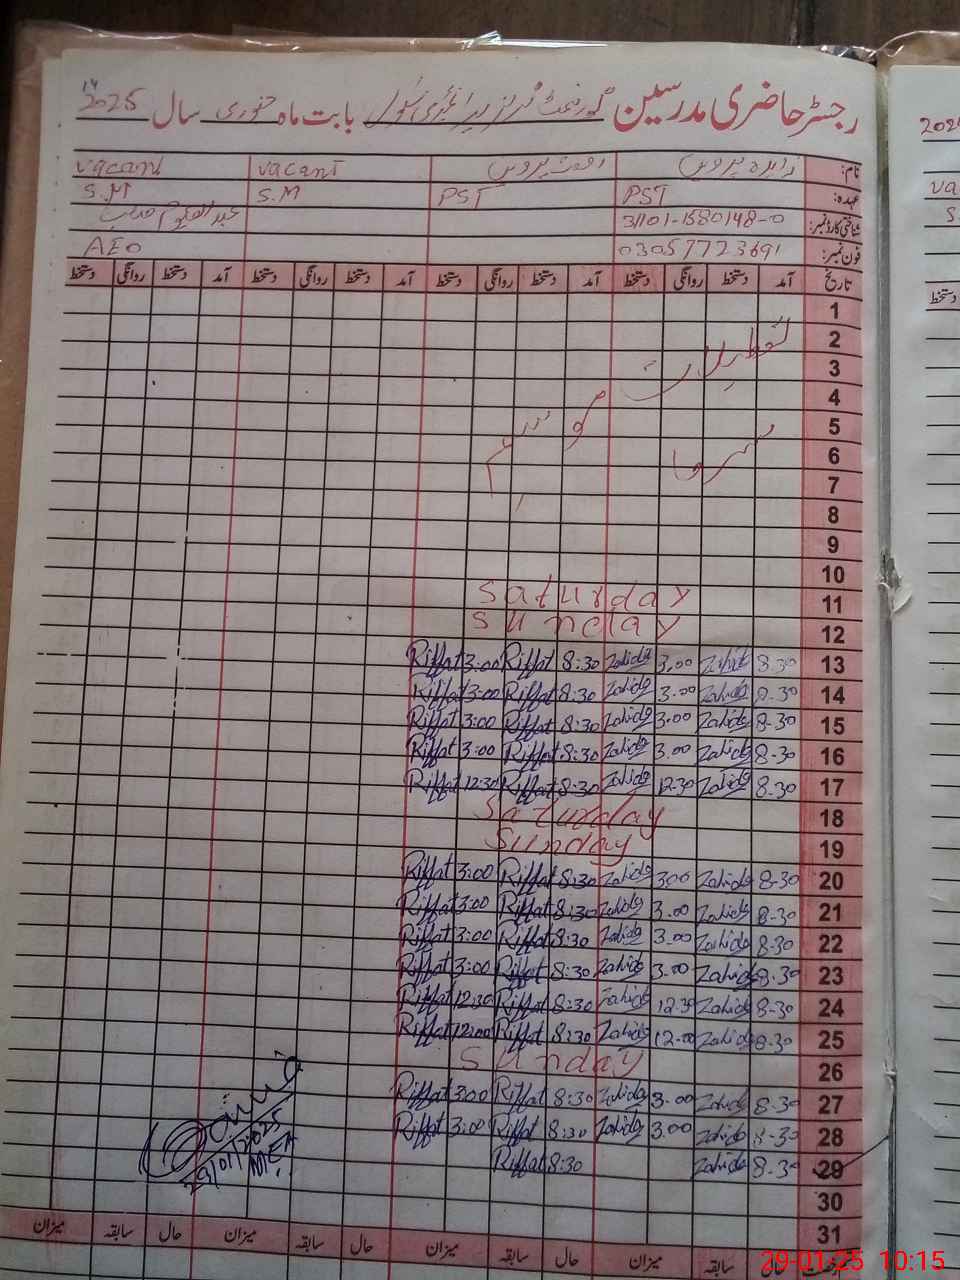 رجسٹر حاضری مدرسین گورنمنٹ گرلز پرائمری سکول بابت ماہ جنوری سال 2025
نام: زاہدہ پروین رفعت پروین vacant vacant
عہدہ: PST PST S.M S.M
شناختی کارڈ نمبر: 31101-1580148-0
فون نمبر: 03057723691 AEO
تاریخ آمد دستخط روانگی دستخط آمد دستخط روانگی دستخط آمد دستخط روانگی دستخط آمد دستخط روانگی دستخط
1
2 تعطیلات
3
4 موسم
5 سرما
6
7
8
9
10
11 Saturday
12 Sunday
13 8.30 Zahida 3.00 Zahida 8:30 Riffat 3:00 Riffat
14 8.30 Zahida 3.00 Zahida 8:30 Riffat 3:00 Riffat
15 8-30 Zahida 3.00 Zahida 8:30 Riffat 3:00 Riffat
16 8-30 Zahida 3.00 Zahida 8:30 Riffat 3:00 Riffat
17 8-30 Zahida 12.30 Zahida 8:30 Riffat 12:30 Riffat
18 Saturday
19 Sunday
20 8-30 Zahida 3.00 Zahida 8:30 Riffat 3:00 Riffat
21 8-30 Zahida 3.00 Zahida 8:30 Riffat 3:00 Riffat
22 8-30 Zahida 3.00 Zahida 8:30 Riffat 3:00 Riffat
23 8-30 Zahida 3.00 Zahida 8:30 Riffat 3:00 Riffat
24 8-30 Zahida 12.30 Zahida 8:30 Riffat 12:30 Riffat
25 8-30 Zahida 12.00 Zahida 8:30 Riffat 12:00 Riffat
26 Sunday
27 8-30 Zahida 3.00 Zahida 8:30 Riffat 3:00 Riffat
28 8-30 Zahida 3.00 Zahida 8:30 Riffat 3:00 Riffat
29 8-30 Zahida 8:30 Riffat
29/01/2025
MEA
30
31
سابقہ میزان حال سابقہ میزان حال سابقہ میزان حال سابقہ میزان
29-01-25 10:15